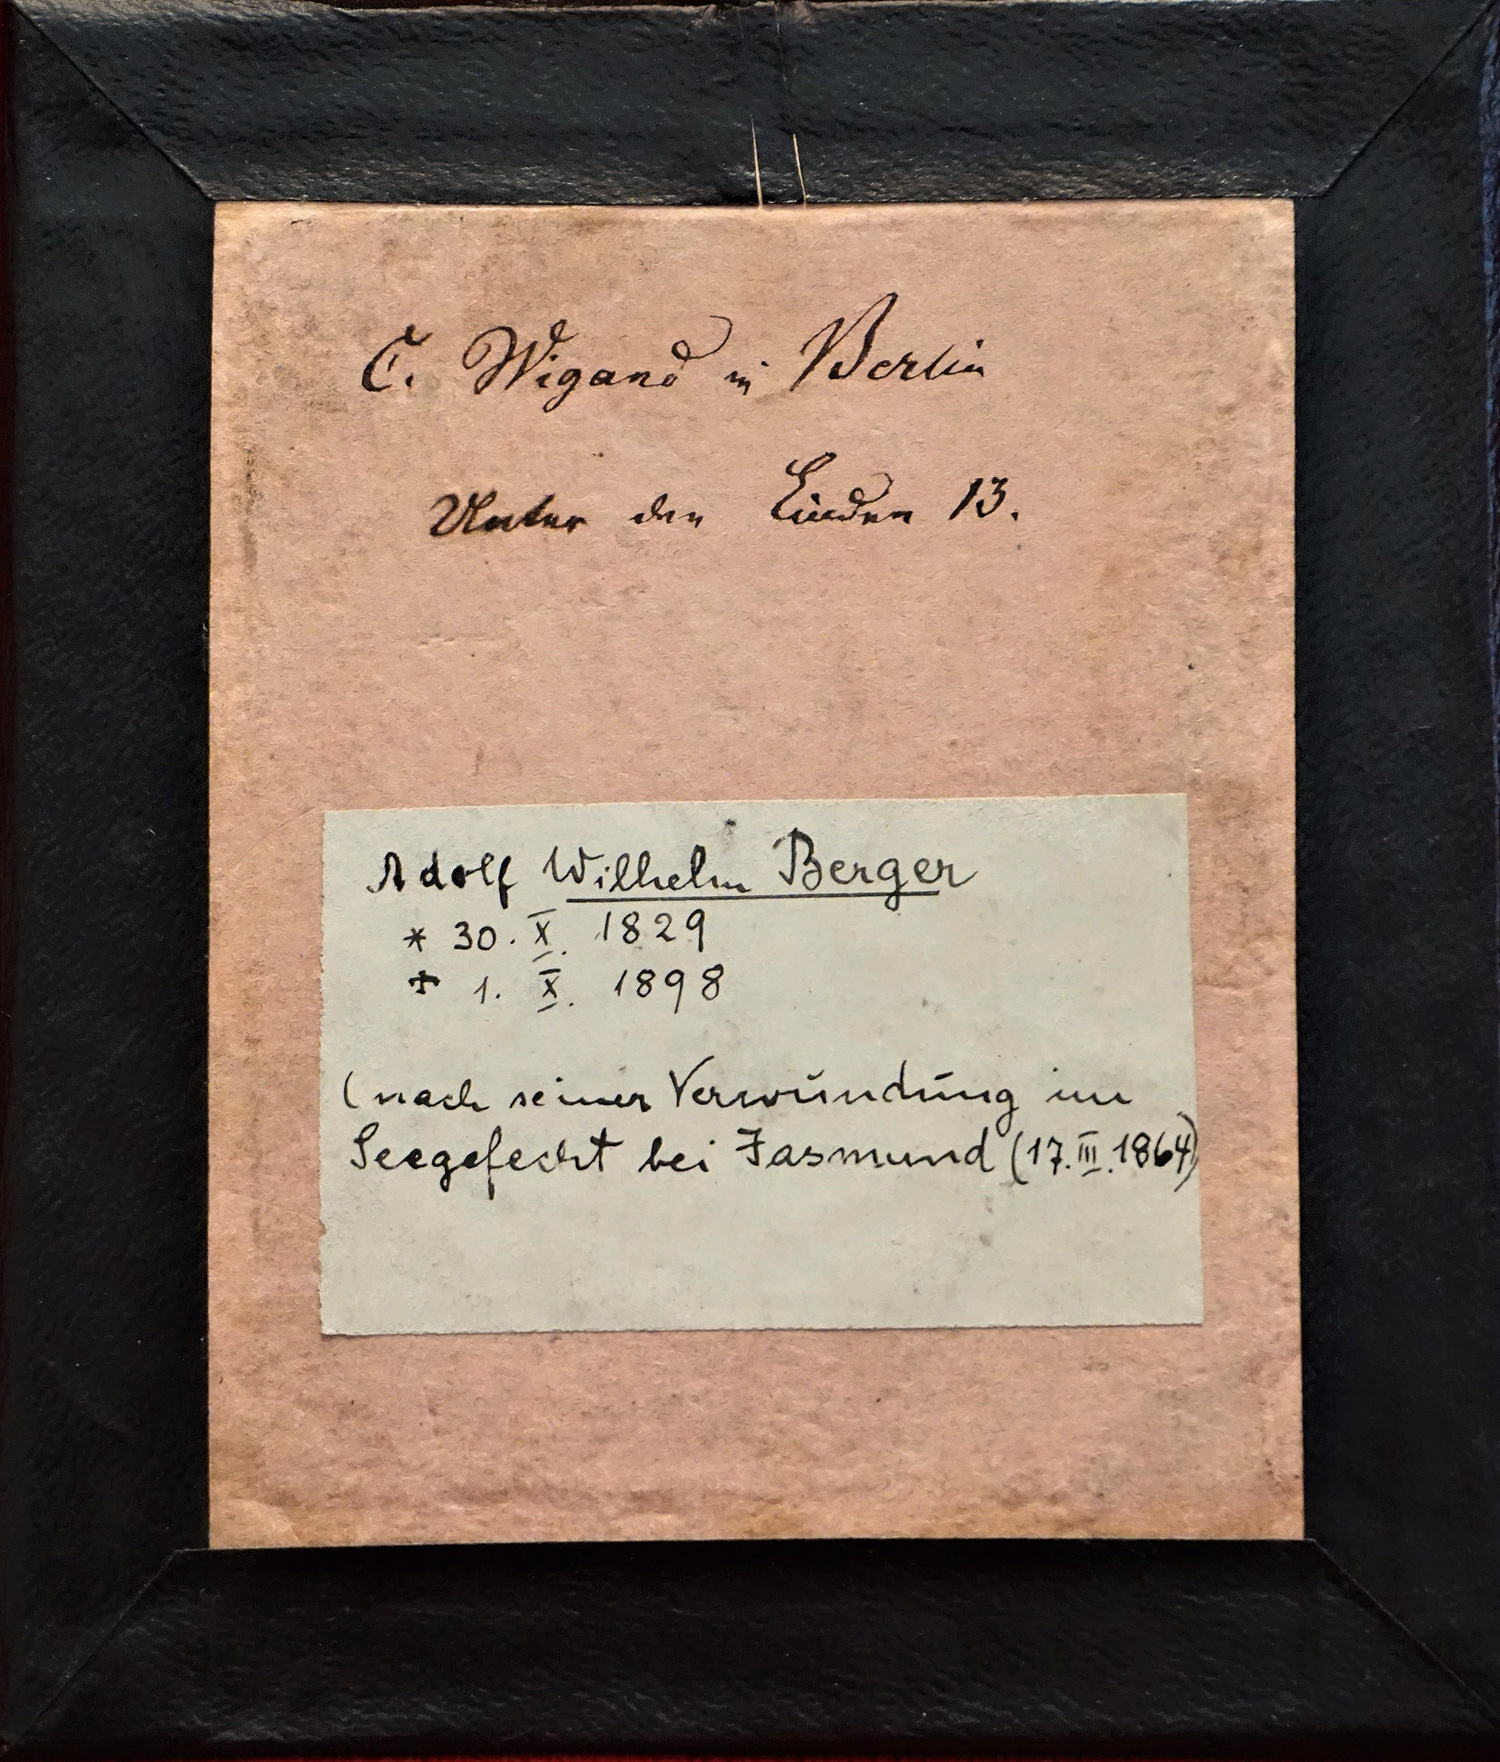 C. Wigand in Berlin
Unter den Linden 13.
Adolf Wilhelm Berger
* 30. X. 1829
† 1. X. 1898
(nach seiner Verwundung im
Seegefecht bei Jasmund (17. III. 1864)